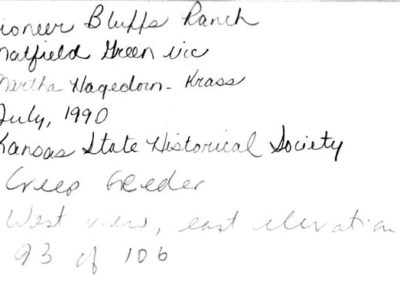 ioneer Bluffs Ranch
atfield Green vic
Martha Hagedorn-Krass
July, 1990
Kansas State Historical Society
Creep Feeder
West view, east elevation
93 of 106